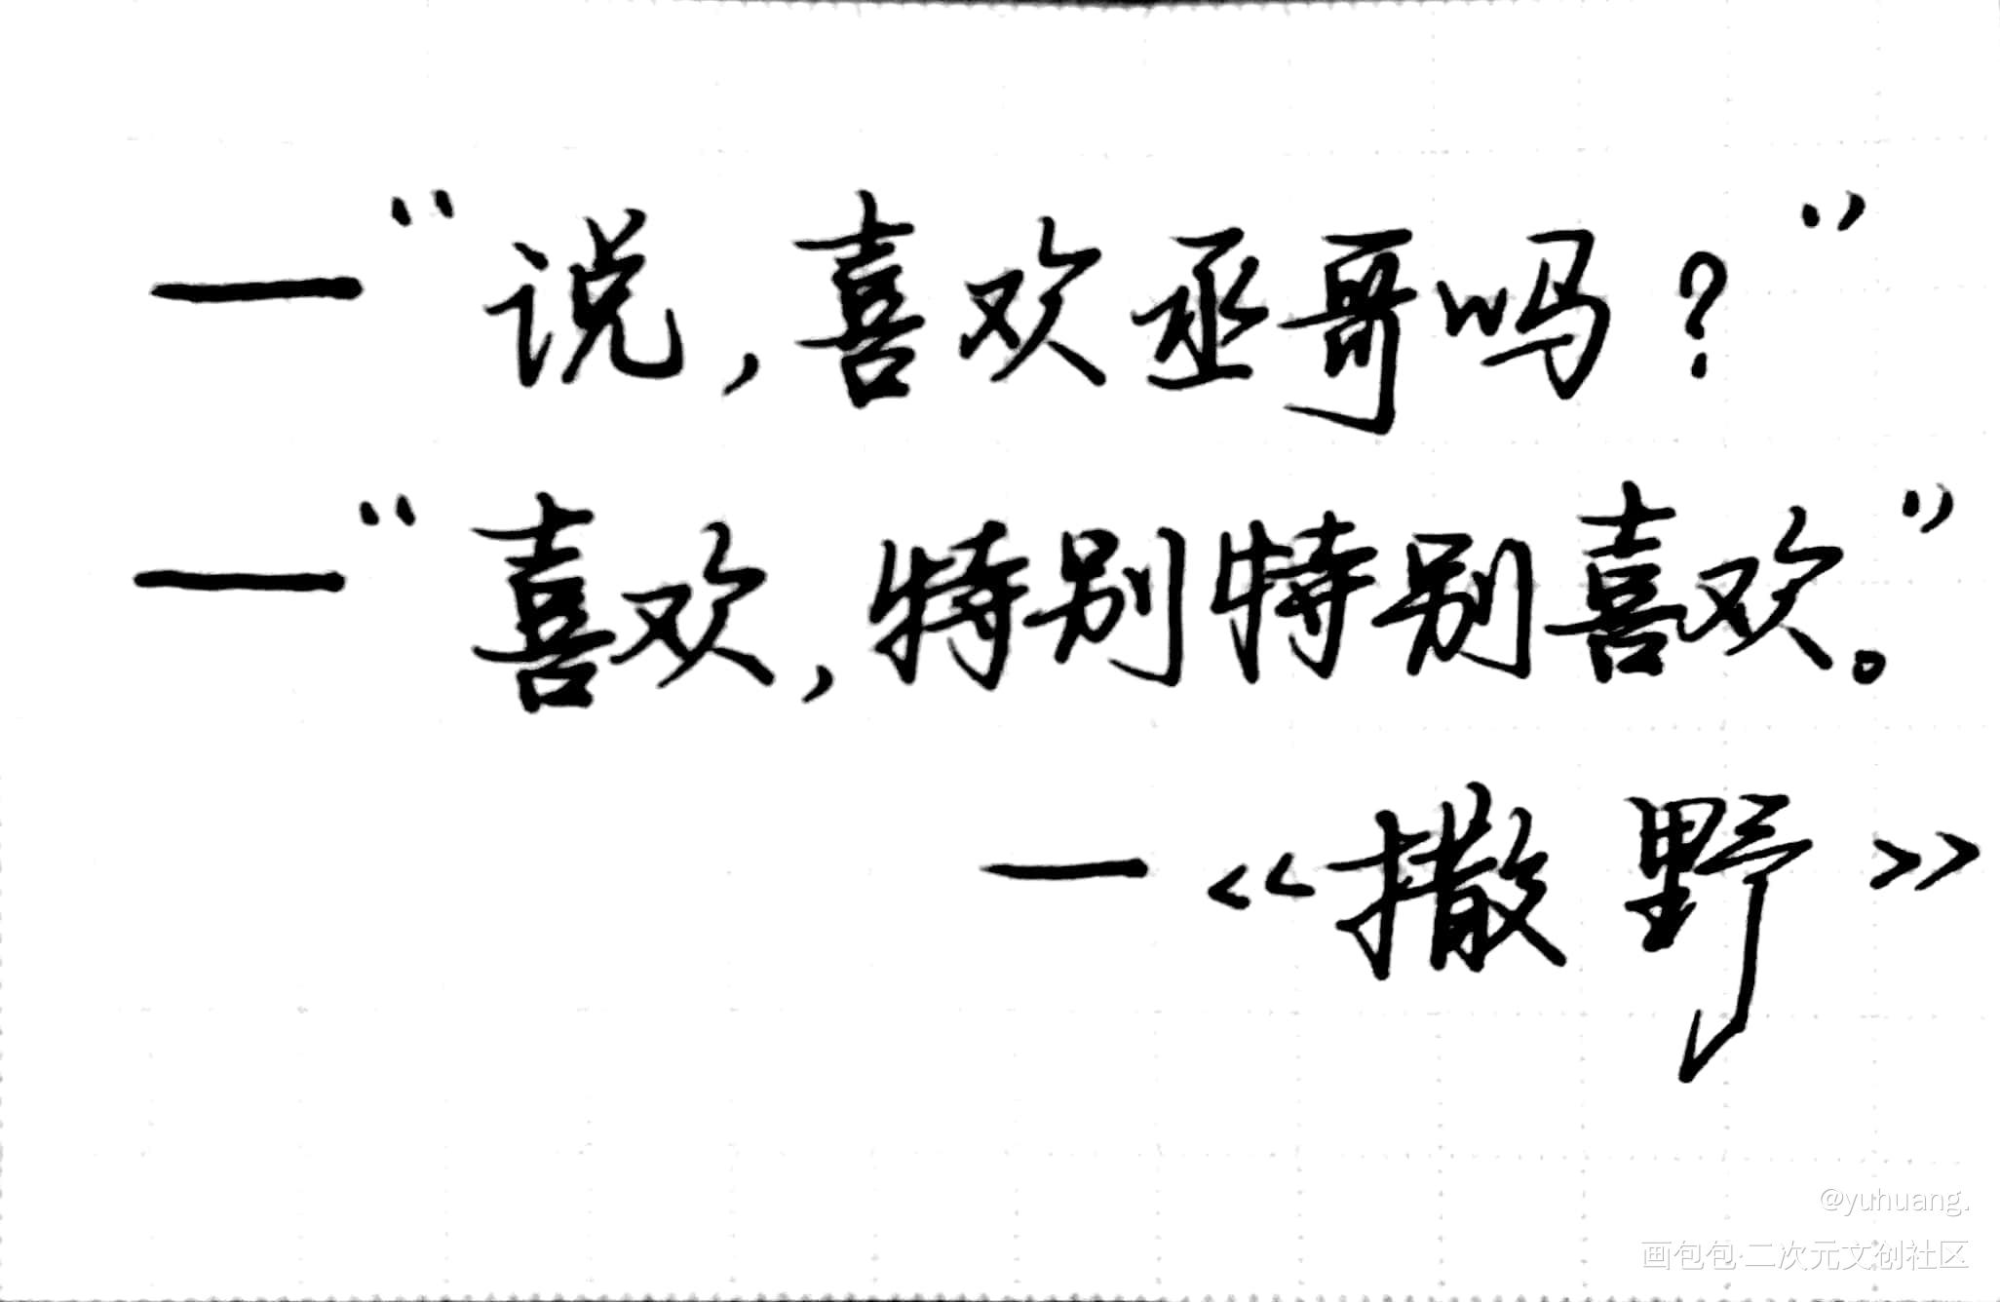 —“说，喜欢丞哥吗？”
—“喜欢，特别特别喜欢。”
—《撒野》
@yuhuang.
画包包·二次元文创社区